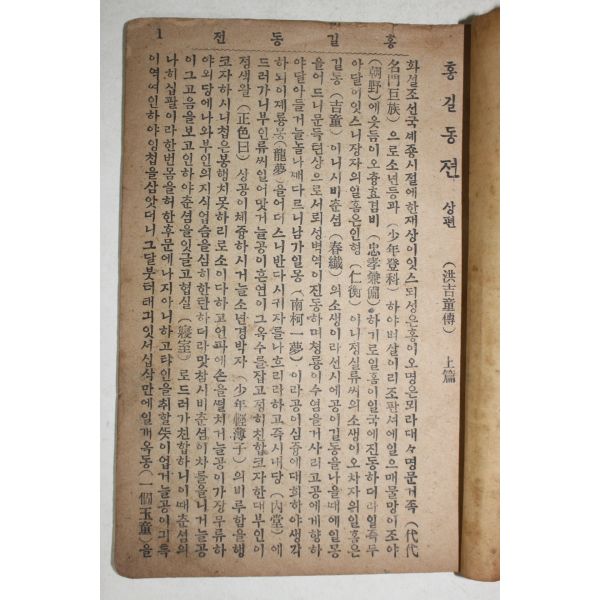 홍길동전 1
홍길동전 상편 (洪吉童傳) 上篇
화셜조선국셰종시절에한재상이잇스되셩은홍이오명은뫼라대々명문거족 (代代
名門巨族) 으로소년등과 (少年登科) 하야벼살이리조판셔에일으매물망이조야
(朝野) 에웃듬이오츙효겸비 (忠孝兼備) 하기로일홈이일국에진동하더라일즉두
아달이잇스니장자의일홈은인형 (仁衡) 이니졍실류씨의소생이오차자의일홈은
길동 (吉童) 이니시비춘셤 (春纖) 의소생이라션시에공이길동을나을때에일몽
을어드니문득텬상으로서뢰셩벽역이진동하며쳥룡이수염을거사리고공에게향하
야달아들거늘놀나깨다르니남가일몽 (南柯一夢) 이라공이심중에대희하야생각
하되이졔룡몽 (龍夢) 을어더스니반다시귀자를나흐리라하고즉시내당 (內堂) 에
드러가니부인류씨일어맛거늘공이흔연이그옥수를잡고졍히친합코자한대부인이
졍색왈 (正色曰) 상공이체즁하시거늘소년경박자 (少年輕薄子) 의비루함을행
코자하시니쳡은봉행치못하리로소이다하고언파에손을떨치거늘공이가장무류하
야외당에나와부인의지식업슴을심히한탄하더라맛참시비춘셤이차를올니거늘공
이그고음을보고인하야춘셤을잇글고협실 (寢室) 로드러가친합하니이때춘셤의
나히십팔이라한번몸을허한후문에나지아니하고타인을취할뜻이업거늘공이긔특
이역여인하야잉쳡을삼앗더니그달붓터태긔잇서십삭만에일개옥동 (一個玉童) 을